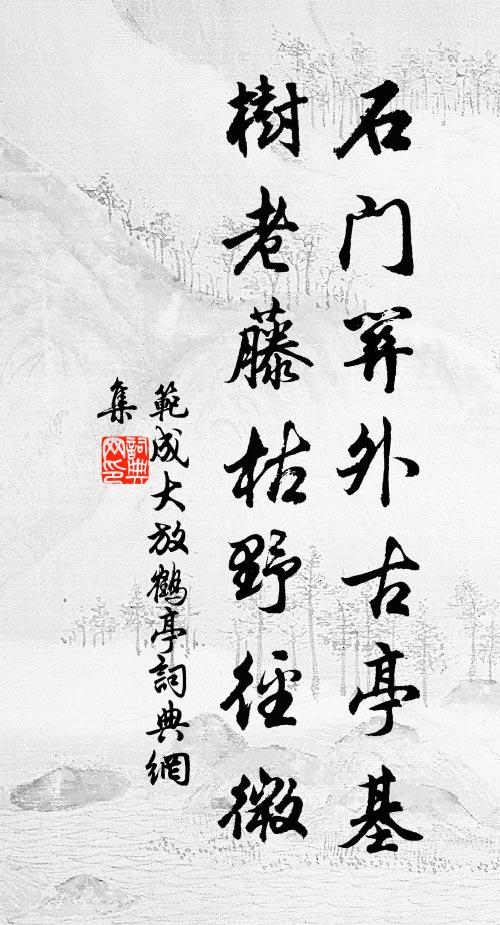 石门關外古亭基
樹老藤枯野徑微
範成大放鶴亭詞典網
集
詞典
网印